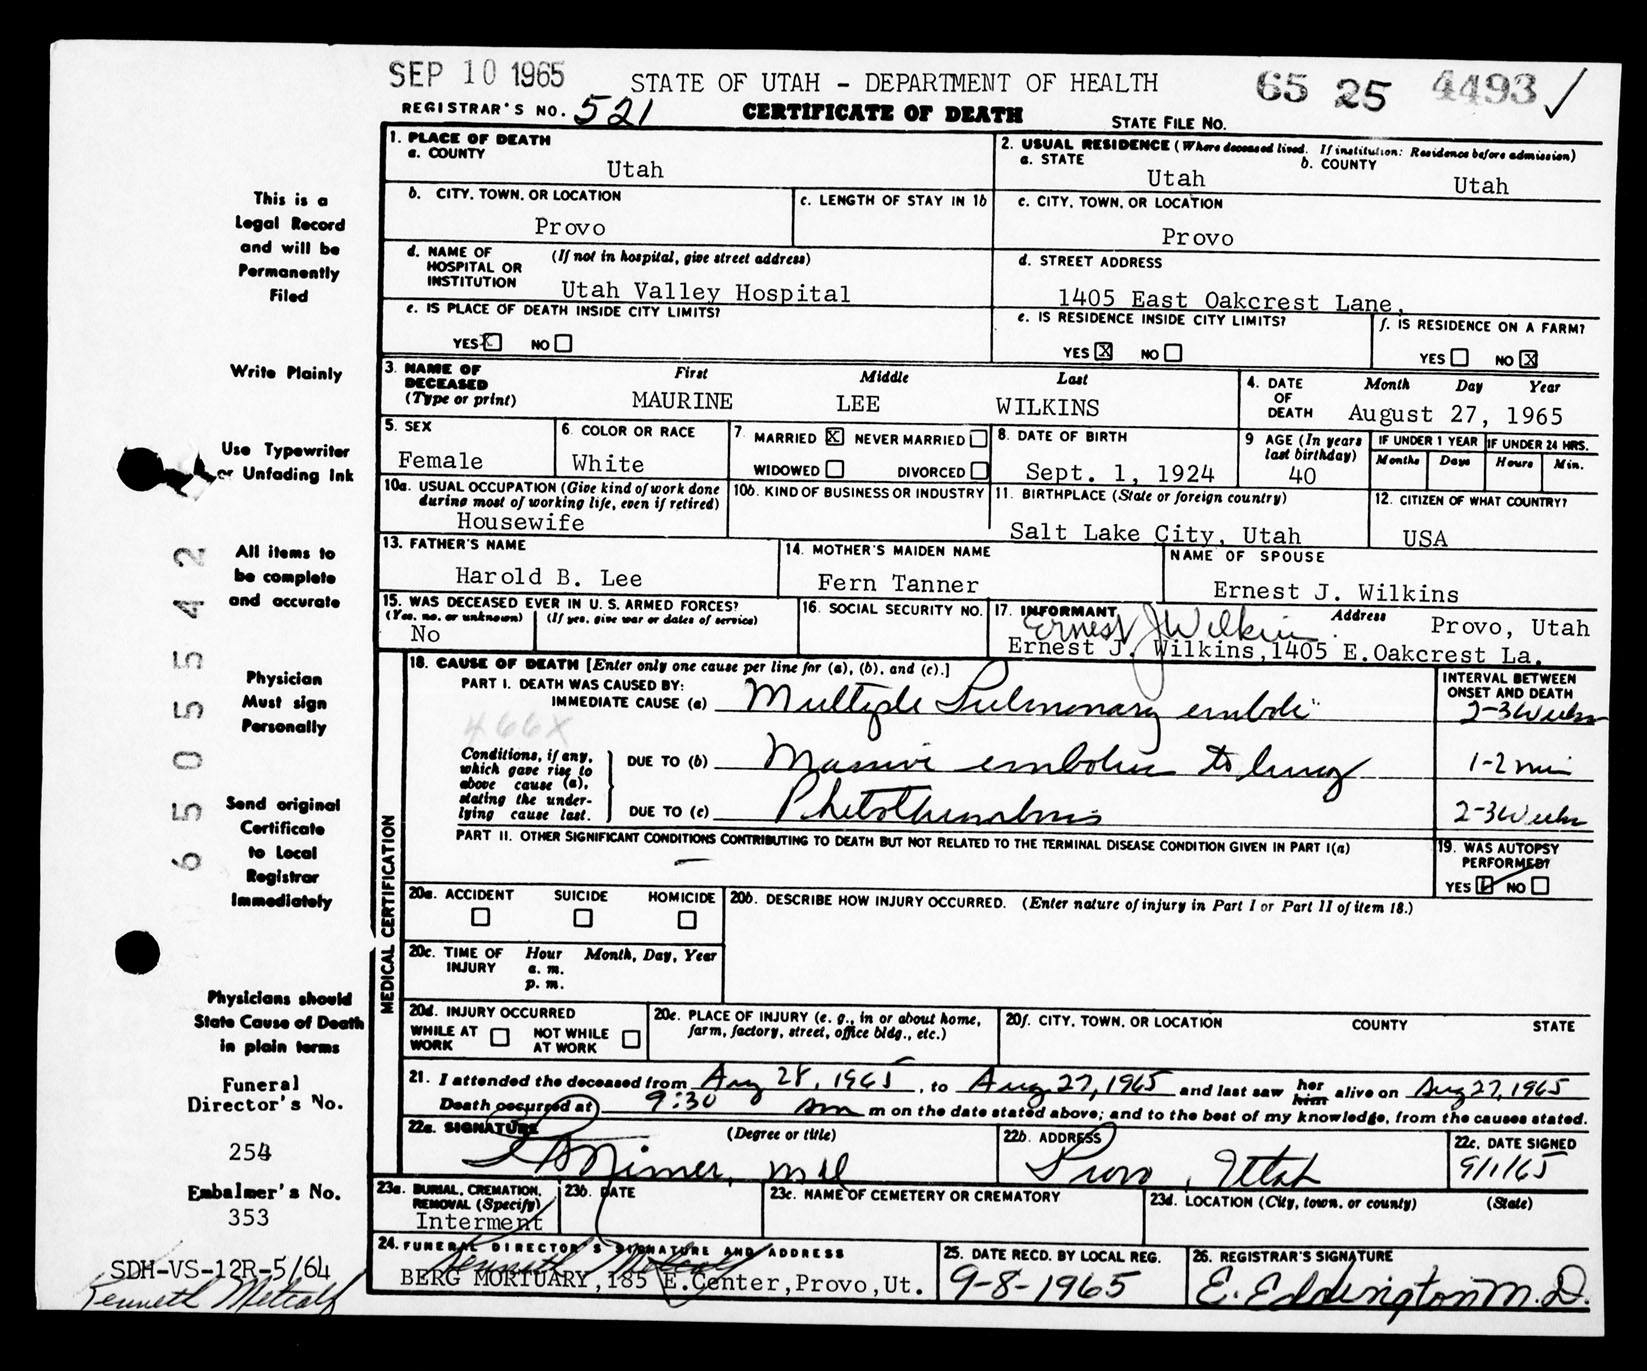 SEP 10 1965 STATE OF UTAH - DEPARTMENT OF HEALTH 65 25 4493
REGISTRAR'S NO. 521 CERTIFICATE OF DEATH STATE FILE NO.
1. PLACE OF DEATH
a. COUNTY
Utah
2. USUAL RESIDENCE (Where deceased lived. If institution: Residence before admission)
a. STATE b. COUNTY
Utah Utah
b. CITY, TOWN, OR LOCATION
Provo
c. LENGTH OF STAY IN 1b
c. CITY, TOWN, OR LOCATION
Provo
d. NAME OF HOSPITAL OR INSTITUTION (If not in hospital, give street address)
Utah Valley Hospital
d. STREET ADDRESS
1405 East Oakcrest Lane,
e. IS PLACE OF DEATH INSIDE CITY LIMITS?
YES X NO
e. IS RESIDENCE INSIDE CITY LIMITS?
YES X NO
f. IS RESIDENCE ON A FARM?
YES NO X
3. NAME OF DECEASED (Type or print)
First Middle Last
MAURINE LEE WILKINS
4. DATE OF DEATH Month Day Year
August 27, 1965
5. SEX
Female
6. COLOR OR RACE
White
7. MARRIED X NEVER MARRIED
WIDOWED DIVORCED
8. DATE OF BIRTH
Sept. 1, 1924
9 AGE (In years last birthday)
40
IF UNDER 1 YEAR IF UNDER 24 HRS.
Months Days Hours Min.
10a. USUAL OCCUPATION (Give kind of work done during most of working life, even if retired)
Housewife
10b. KIND OF BUSINESS OR INDUSTRY
11. BIRTHPLACE (State or foreign country)
Salt Lake City, Utah
12. CITIZEN OF WHAT COUNTRY?
USA
13. FATHER'S NAME
Harold B. Lee
14. MOTHER'S MAIDEN NAME
Fern Tanner
NAME OF SPOUSE
Ernest J. Wilkins
15. WAS DECEASED EVER IN U. S. ARMED FORCES?
(Yes, no, or unknown) (If yes, give war or dates of service)
No
16. SOCIAL SECURITY NO.
17. INFORMANT Address
Ernest J Wilkins
Provo, Utah
Ernest J. Wilkins,1405 E.Oakcrest La.
MEDICAL CERTIFICATION
18. CAUSE OF DEATH [Enter only one cause per line for (a), (b), and (c).]
INTERVAL BETWEEN ONSET AND DEATH
PART I. DEATH WAS CAUSED BY:
IMMEDIATE CAUSE (a) Multiple Pulmonary emboli 2-3 Weeks
466X
Conditions, if any, which gave rise to above cause (a), stating the underlying cause last.
DUE TO (b) Massive embolus to lung 1-2 min
DUE TO (c) 2-3 Weeks
PART II. OTHER SIGNIFICANT CONDITIONS CONTRIBUTING TO DEATH BUT NOT RELATED TO THE TERMINAL DISEASE CONDITION GIVEN IN PART I(a)
19. WAS AUTOPSY PERFORMED?
YES NO
20a. ACCIDENT SUICIDE HOMICIDE
20b. DESCRIBE HOW INJURY OCCURRED. (Enter nature of injury in Part I or Part II of item 18.)
20c. TIME OF INJURY Hour Month, Day, Year
a. m.
p. m.
20d. INJURY OCCURRED
WHILE AT WORK NOT WHILE AT WORK
20e. PLACE OF INJURY (e. g., in or about home, farm, factory, street, office bldg., etc.)
20f. CITY, TOWN, OR LOCATION COUNTY STATE
21. I attended the deceased from Aug 28, 1965, to Aug 27, 1965 and last saw her him alive on Aug 27, 1965
Death occurred at 9:30 am m on the date stated above; and to the best of my knowledge, from the causes stated.
22a. SIGNATURE (Degree or title)
Nimer, MD
22b. ADDRESS
Provo, Utah
22c. DATE SIGNED
9/1/65
23a. BURIAL, CREMATION, REMOVAL (Specify)
Interment
23b. DATE
23c. NAME OF CEMETERY OR CREMATORY
23d. LOCATION (City, town, or county) (State)
24. FUNERAL DIRECTOR'S SIGNATURE AND ADDRESS
Kenneth Metcalf
BERG MORTUARY,185 E.Center,Provo,Ut.
25. DATE RECD. BY LOCAL REG.
9-8-1965
26. REGISTRAR'S SIGNATURE
E. Eddington M.D.
This is a
Legal Record
and will be
Permanently
Filed
Write Plainly
Use Typewriter
or Unfading Ink
All items to
be complete
and accurate
Physician
Must sign
Personally
Send original
Certificate
to Local
Registrar
Immediately
Physicians should
State Cause of Death
in plain terms
Funeral
Director's No.
254
Embalmer's No.
353
SDH-VS-12R-5/64
Kenneth Metcalf
65055542